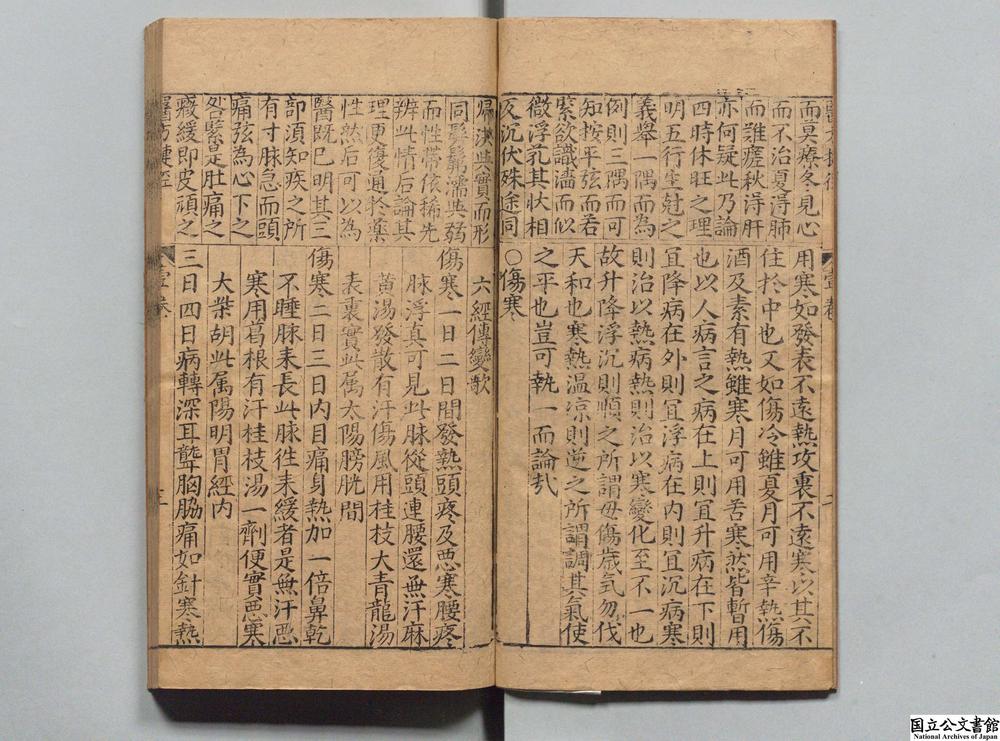 而莫療冬見心
而不治夏淂肺
而難瘥秋淂肝
亦何疑此乃論
四時休旺之理
明五行生尅之
義舉一隅而為
例則三隅而可
知按平弦而若
緊欲識濇而似
微浮芤其狀相
反沉伏殊途同
用寒如發表不遠熱攻裏不遠寒以其不
住扵中也又如傷冷雖夏月可用辛熱傷
酒及素有熱雖寒月可用苦寒然皆暫用
也以人病言之病在上則冝升病在下則
冝降病在外則冝浮病在内則冝沉病寒
則治以熱病熱則治以寒變化至不一也
故升降浮沉則順之所謂毋傷歲氣勿伐
天和也寒熱温凉則逆之所謂調其氣使
之平也豈可執一而論㢤
○傷寒
帰洪與實而形
同髣髴濡與弱
而性帶依稀先
辨此情后論其
理更復通扵藥
性然后可以為
醫既已明其三
部湏知疾之所
有寸脉急而頭
痛弦為心下之
咎緊是肚痛之
癥緩即皮頑之
醫方捷徑
六經傳變歌
傷寒一日二日間發熱頭疼及惡寒腰疼
脉浮真可見此脉從頭連腰還無汗麻
黄湯發散有汗傷風用桂枝大青龍湯
表裏實此属太陽膀胱間
傷寒二日三日内目痛身熱加一倍鼻乾
不睡脉来長此脉徃来緩者是無汗惡
寒用葛根有汗桂枝湯一劑便實惡寒
大柴胡此属陽明胃經内
三日四日病轉深耳聾胸脇痛如針寒熱
壹卷
国立公文書館
National Archives of Japan